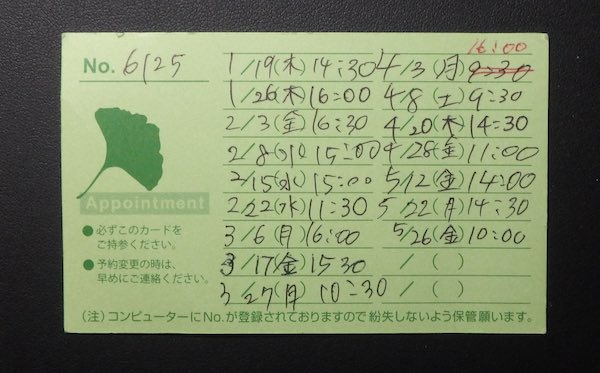 No. 6125
1/19(木) 14:30
1/26(木) 16:00
2/3(金) 16:30
2/8(水) 15:00
2/15(水) 15:00
2/22(水) 11:30
3/6(月) 16:00
3/17(金) 15 30
3/27(月) 10:30
16:00
4/3(月) 9:30
4/8(土) 9:30
4/20(木) 14:30
4/28(金) 11:00
5/12(金) 14:00
5/22(月) 14:30
5/26(金) 10:00
/ ( )
/ ( )
Appointment
●必ずこのカードを
ご持参ください。
●予約変更の時は、
早めにご連絡ください。
(注)コンピューターにNo.が登録されておりますので紛失しないよう保管願います。